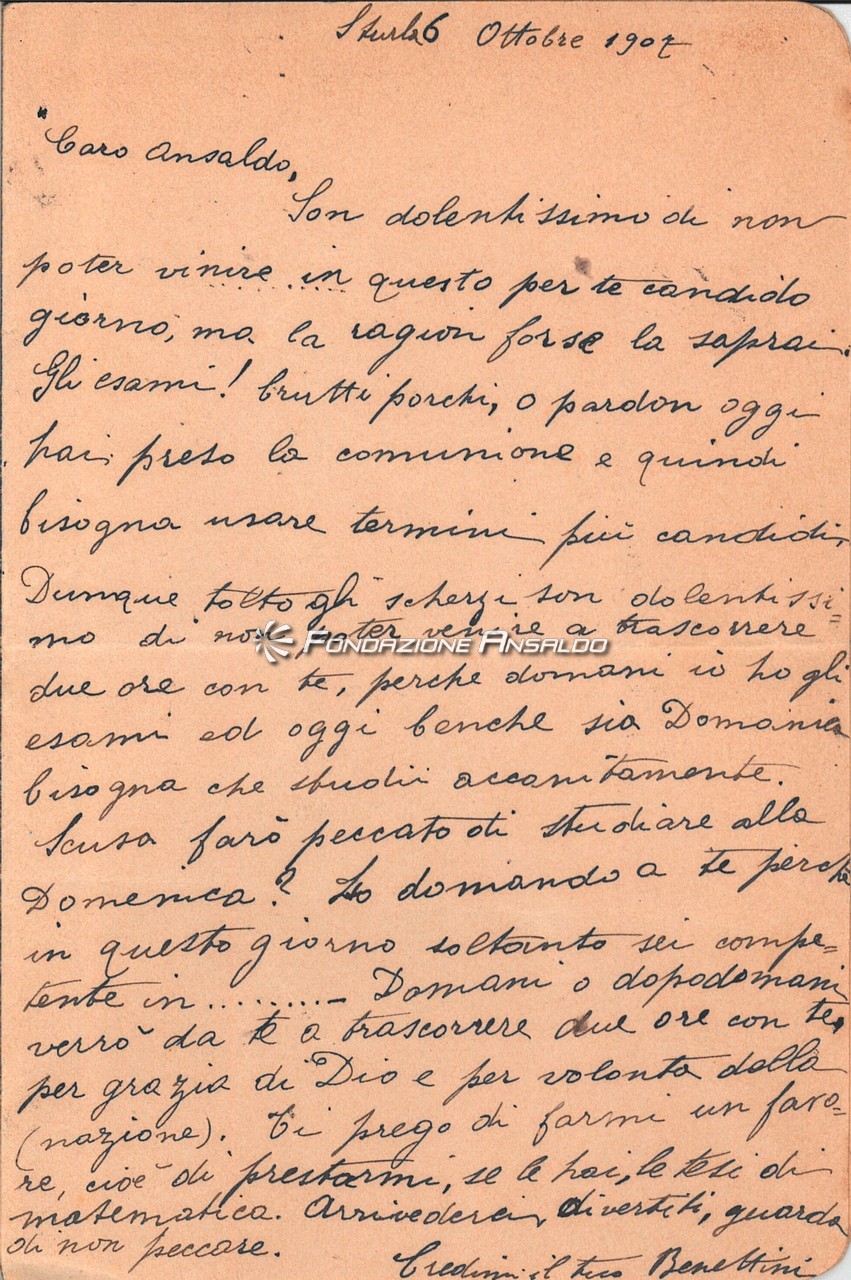 Sturla 6 Ottobre 1907
"Caro Ansaldo,
Son dolentissimo di non
poter vinire in questo per te candido
giorno, ma la ragion forse la saprai.
Gli esami! brutti porchi, o pardon oggi
hai preso la comunione e quindi
bisogna usare termini più candidi,
Dunque tolto gli scherzi son dolentissi=
mo di non poter venire a trascorrere
FONDAZIONE ANSALDO
due ore con te, perche domani io ho gli
esami ed oggi benche sia Domenica
bisogna che studii accanitamente.
Scusa farò peccato di studiare alla
Domenica? Lo domando a te perche
in questo giorno soltanto sei compe-
tente in ......... Domani o dopodomani
verrò da te a trascorrere due ore con te,
per grazia di Dio e per volonta della
(nazione). Ti prego di farmi un favo-
re, cioè di prestarmi, se le hai, le tesi di
matematica. Arrivederci, divertiti, guarda
di non peccare.
Credimi il tuo Benettini